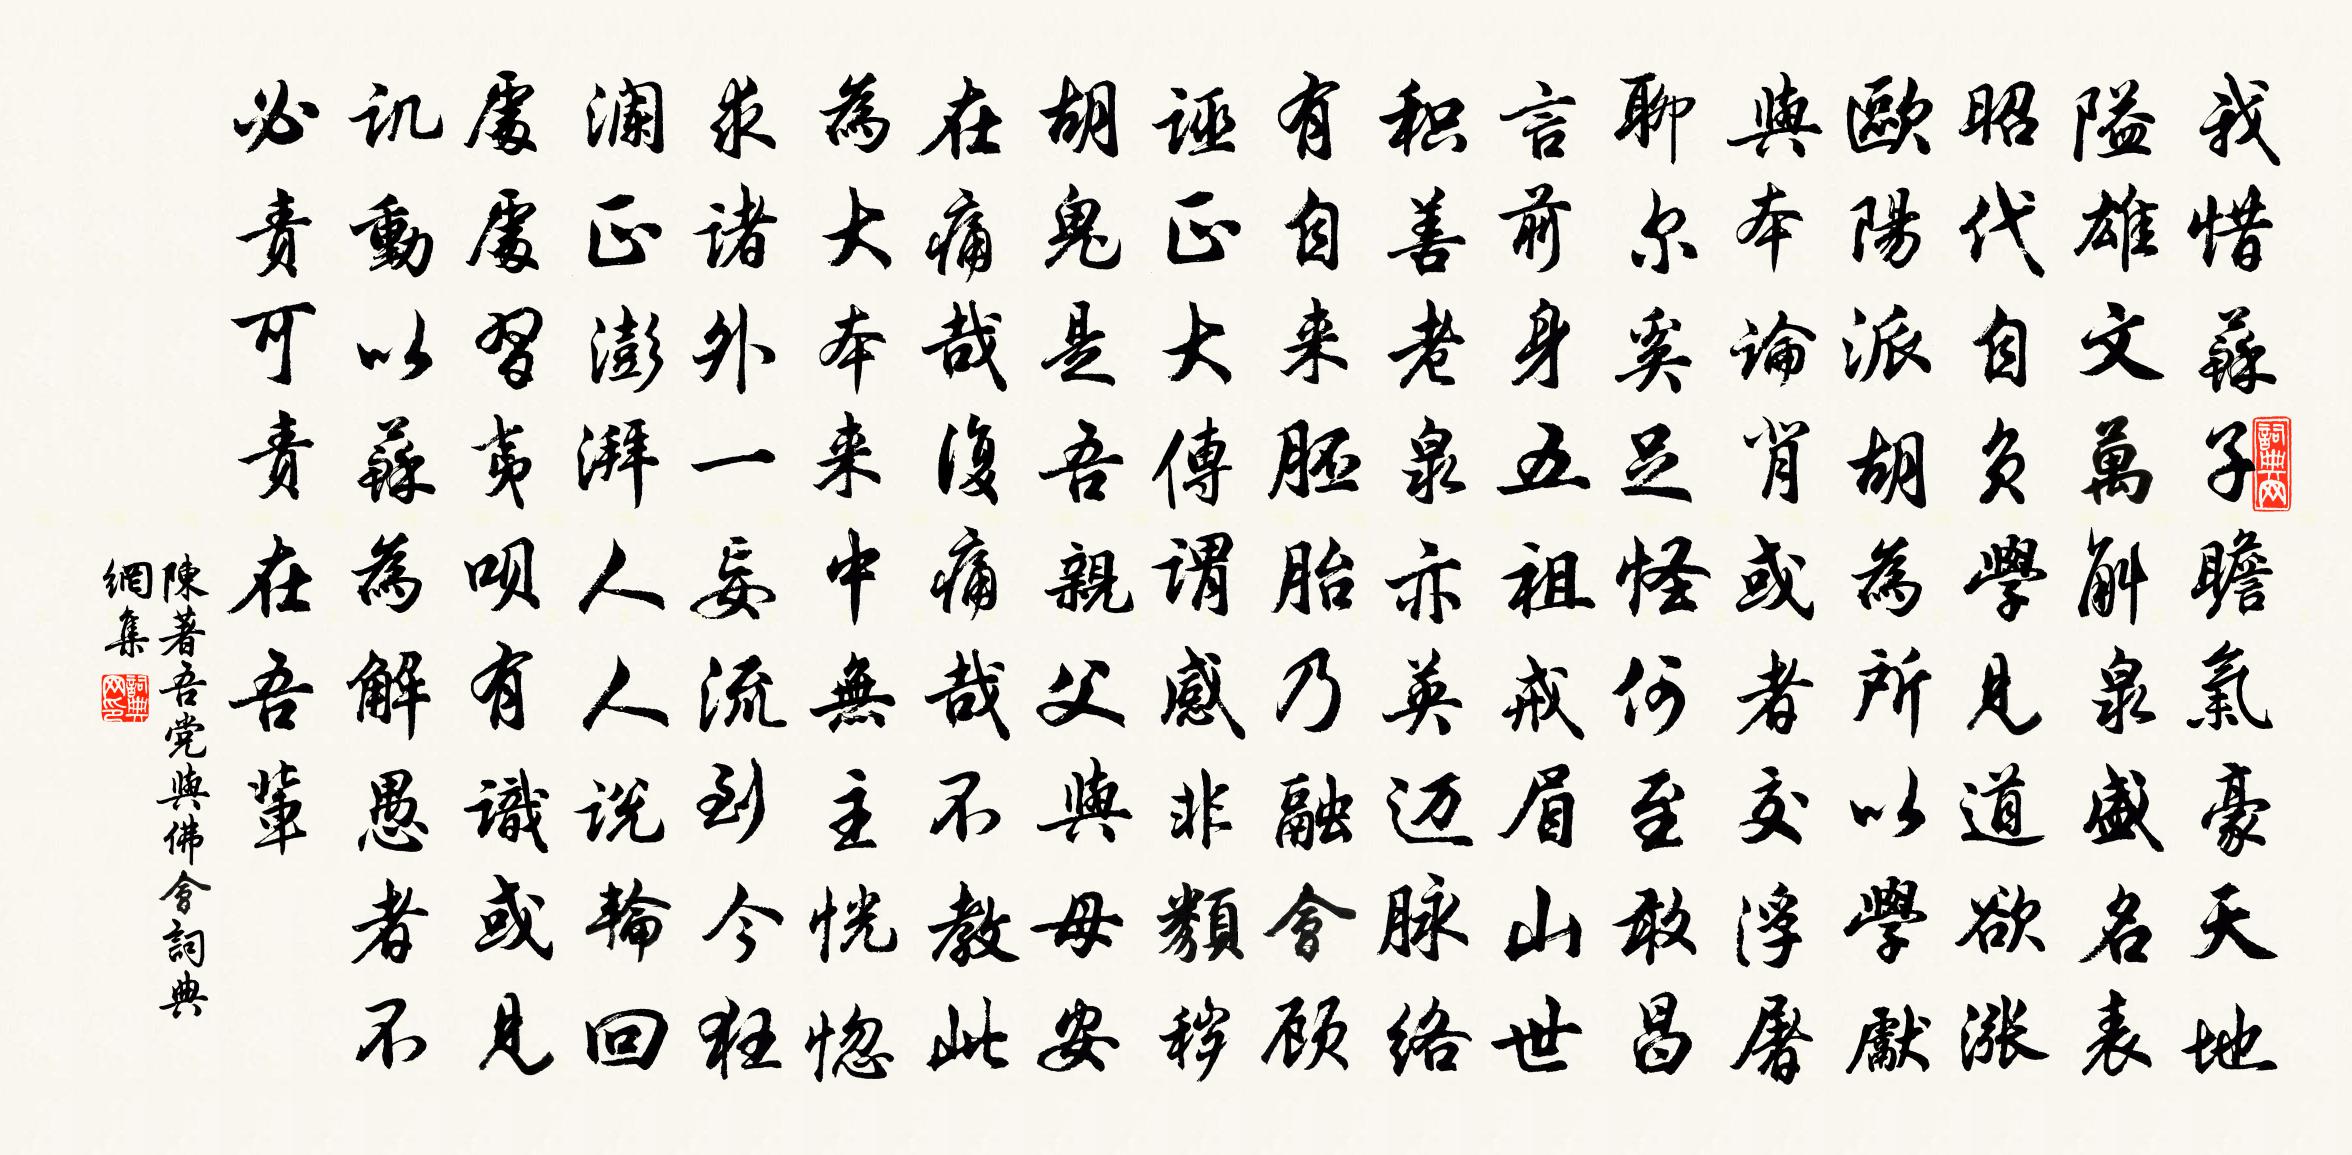 我惜蘇子瞻氣豪天地
隘雄文萬斛泉盛名表
昭代自負學見道欲漲
歐陽派胡為所以學獻
與本論背或者交浮屠
聊尔奚足怪何至敢昌
言前身五祖戒眉山世
积善老泉亦英迈脉络
有自来胚胎乃融會顾
誣正大傳謂感非類穢
胡鬼是吾親父與母安
在痛哉復痛哉不教此
為大本来中無主恍惚
求诸外一妄流到今狂
澜正澎湃人人说輪回
處處習夷呗有識或見
讥動以蘇為解愚者不
必責可責在吾輩
陳著吾党與佛會詞典
網集
詞典网
詞典网印